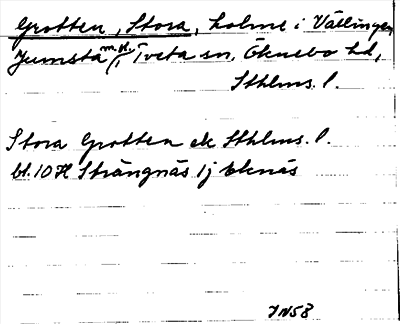 Grotten, Stora, holme i Vällingen
Jumsta m.fl., Tveta sn, Öknebo hd,
Sthlms. l.
Stora Grotten ek Sthlms. l.
bl. 10 H Strängnäs 1j Eknäs
JN58